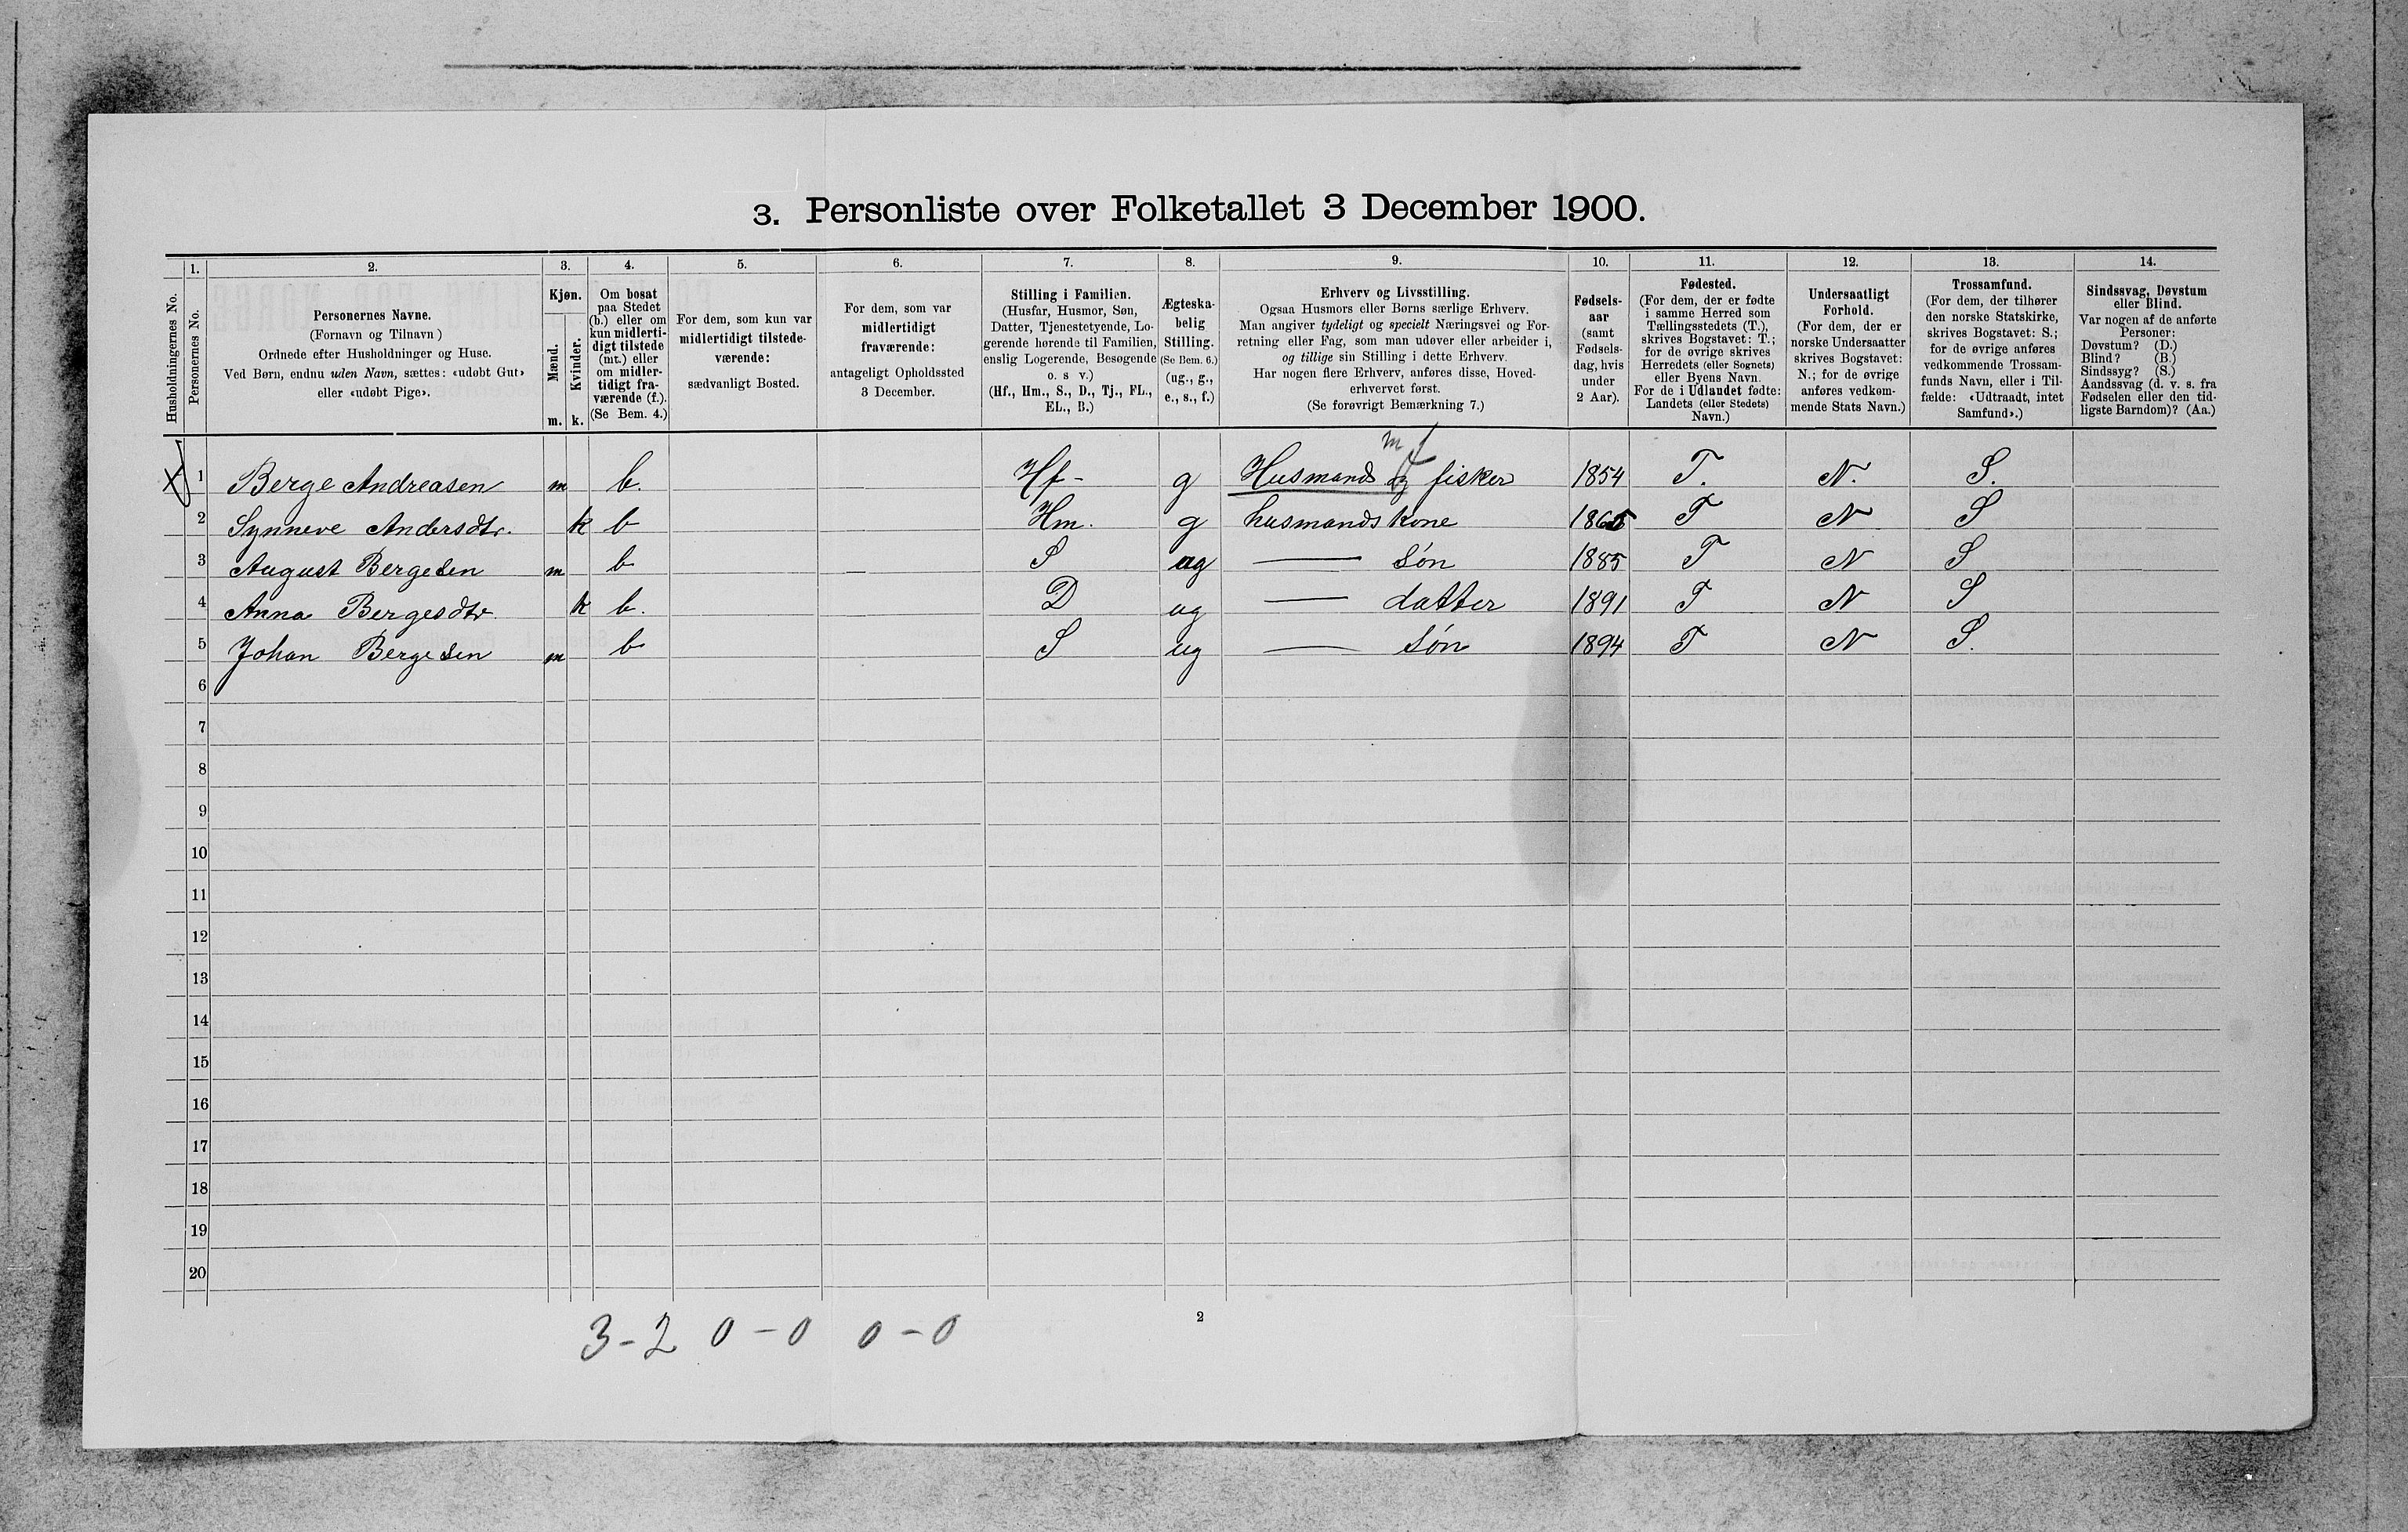 3. Personliste over Folketallet 3 December 1900.
1. 2. 3. 4. 5. 6. 7. 8. 9. 10. 11. 12. 13. 14.
Husholdningernes No.
Personernes No.
Personernes Navne.
(Fornavn og Tilnavn)
Ordnede efter Husholdninger og Huse.
Ved Børn, endnu uden Navn, sættes: «udøbt Gut»
eller «udøbt Pige».
Kjøn.
Mænd.
Kvinder.
m. k.
Om bosat
paa Stedet
(b.) eller om
kun midlerti-
digt tilstede
(mt.) eller
om midler-
tidigt fra-
værende (f.).
(Se Bem. 4.)
For dem, som kun var
midlertidigt tilstede-
værende:
sædvanligt Bosted.
For dem, som var
midlertidigt
fraværende:
antageligt Opholdssted
3 December.
Stilling i Familien.
(Husfar, Husmor, Søn,
Datter, Tjenestetyende, Lo-
gerende hørende til Familien,
enslig Logerende, Besøgende
o. s v.)
(Hf., Hm., S., D., Tj., FL.,
EL., B.)
Ægteska-
belig
Stilling.
(Se Bem. 6.)
(ug., g.,
e., s., f.)
Erhverv og Livsstilling.
Ogsaa Husmors eller Børns særlige Erhverv.
Man angiver tydeligt og specielt Næringsvei og For-
retning eller Fag, som man udøver eller arbeider i,
og tillige sin Stilling i dette Erhverv.
Har nogen flere Erhverv, anføres disse, Hoved-
erhvervet først.
(Se forøvrigt Bemærkning 7.)
Fødsels-
aar
(samt
Fødsels-
dag, hvis
under
2 Aar).
Fødested.
(For dem, der er fødte
i samme Herred som
Tællingsstedets (T.),
skrives Bogstavet: T.;
for de øvrige skrives
Herredets (eller Sognets)
eller Byens Navn.
For de i Udlandet fødte:
Landets (eller Stedets)
Navn.)
Undersaatligt
Forhold.
(For dem, der er
norske Undersaatter
skrives Bogstavet:
N.; for de øvrige
anføres vedkom-
mende Stats Navn.)
Trossamfund.
(For dem, der tilhører
den norske Statskirke,
skrives Bogstavet: S.;
for de øvrige anføres
vedkommende Trossam-
funds Navn, eller i Til-
fælde: «Udtraadt, intet
Samfund».)
Sindssvag, Døvstum
eller Blind.
Var nogen af de anførte
Personer:
Døvstum? (D.)
Blind? (B.)
Sindssyg? (S.)
Aandssvag (d. v. s. fra
Fødselen eller den tid-
ligste Barndom)? (Aa.)
m
1 Berge Andreasen m b. Hf- g Husmand og fisker 1854 T. N. S.
2 Synneve Andersdtr. k b Hm. g husmandskone 1865 T N S
3 August Bergesen m b S ug — søn 1885 T N S
4 Anna Bergesdtr. k b. D ug — datter 1891 T N S
5 Johan Bergesen m b S ug — søn 1894 T N S.
6
7
8
9
10
11
12
13
14
15
16
17
18
19
20
2
3-2 0-0 0-0